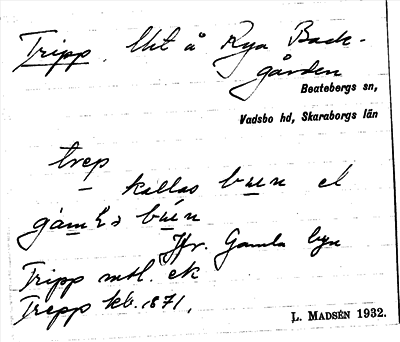 Tripp. Uht å Rya Back-
gården
Beatebergs sn,
Vadsbo hd, Skaraborgs län
trep
kallas buen el
buen
Jfr. Gamla byn
Tripp mtl. ek
Trepp kb. 1871.
L. MADSÉN 1932.